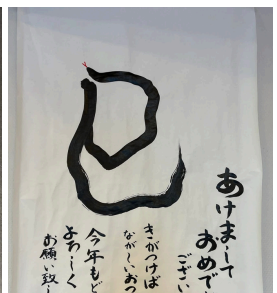 巳
あけまして
おめで
ござい
きがつけば
ながーいおつ
今年もど
よろしく
お願い致し